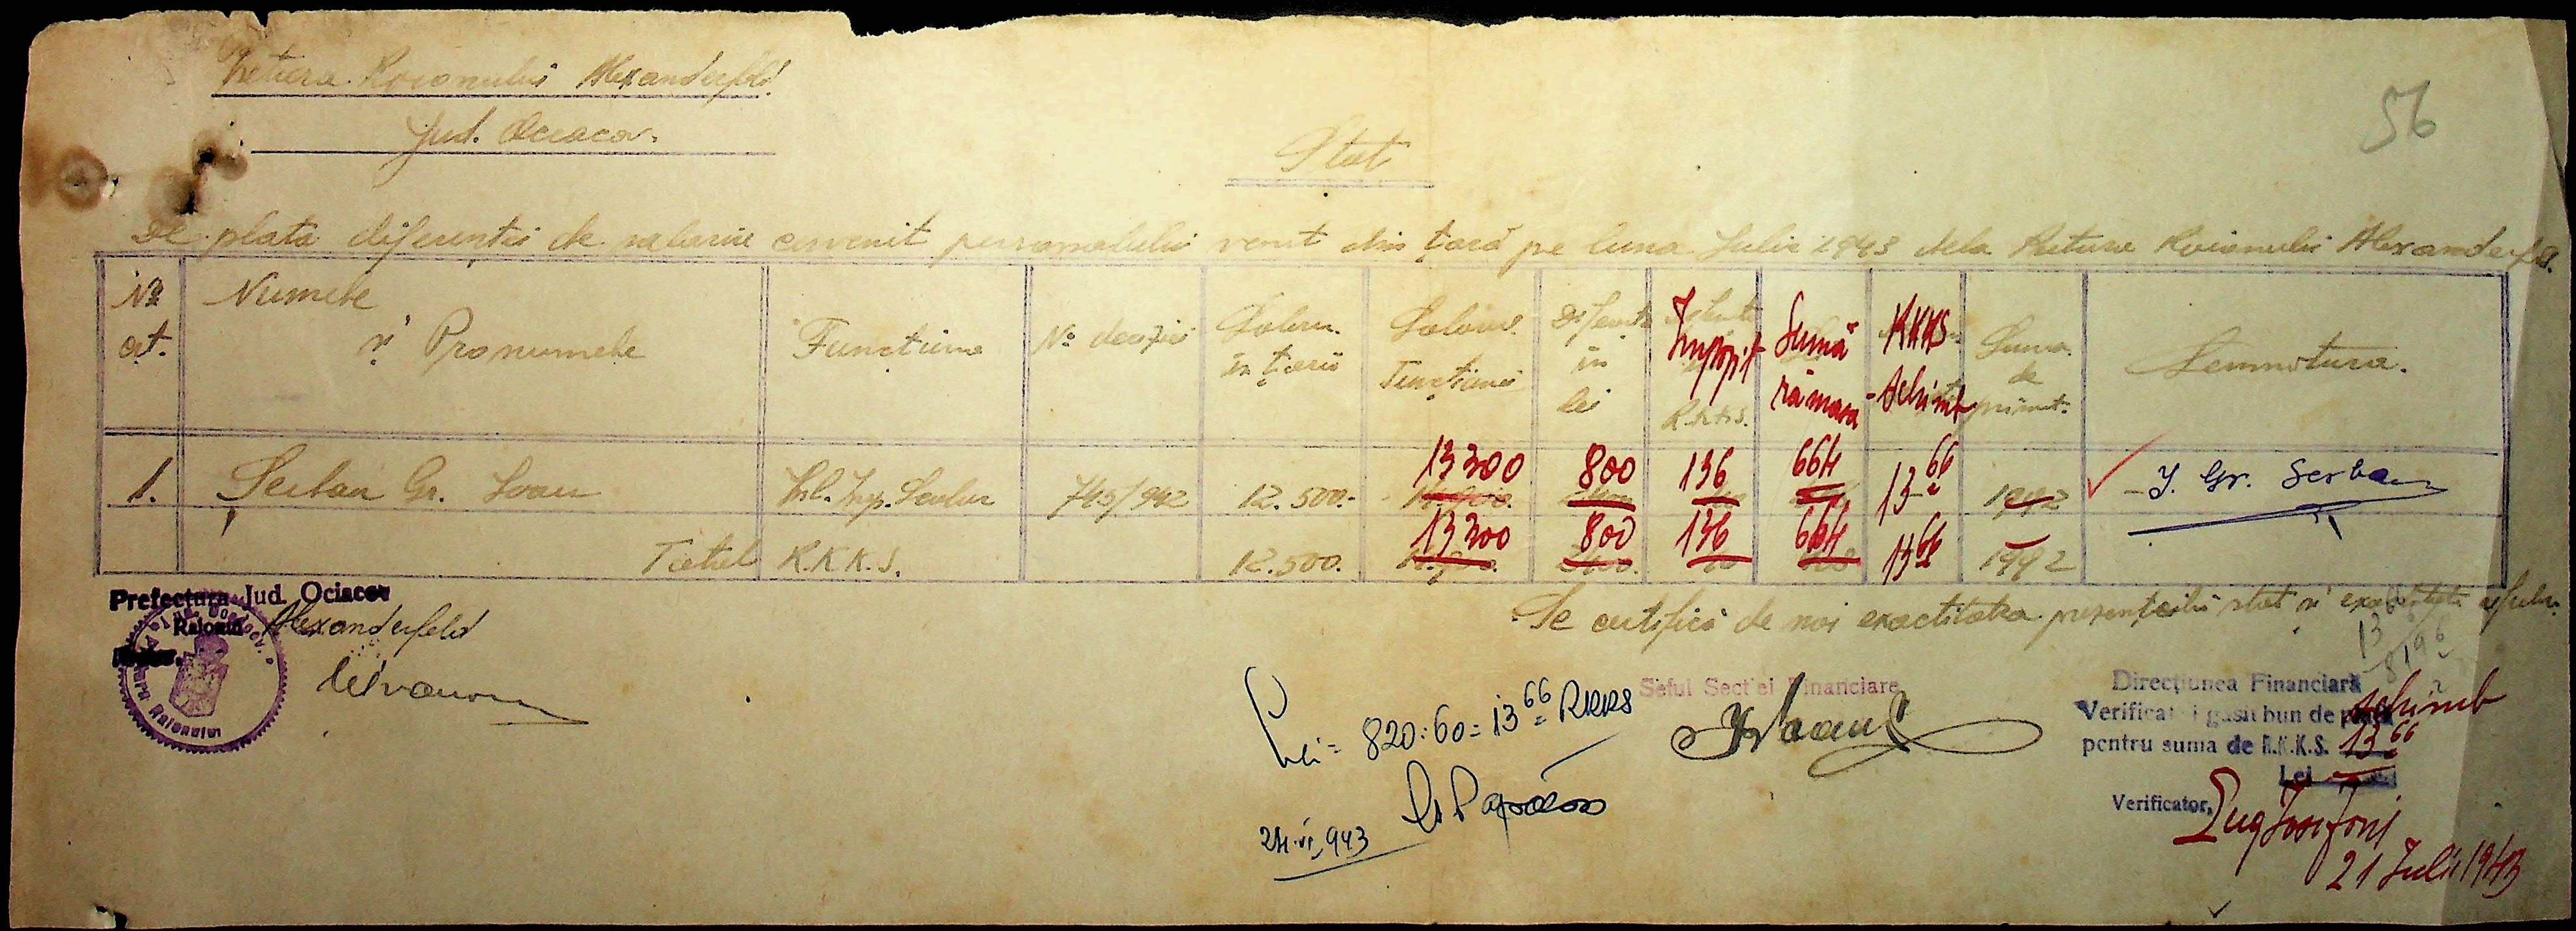 Pretura Raionului Alexanderfeld
Jud. Ociacov.
56
Stat
De plata diferenței de salariu cuvenit personalului venit din țară pe luna Julie 1943 dela Pretura Raionului Alexanderfeld.
No crt. Numele și Pronumele Funcțiune No deciziei Salariu în țară Salariul Funcțiunii Diferența în lei Impozit R.K.K.S. Sumă rămasă RKKS Schimb Suma de primit Semnătura.
13300 800 136 664 13 66
1. Serban Gr. Ioan Insp. Scolar 745/942 12.500.- 1992 - I. Gr. Serban
13300 800 136 664 13 66
Total R.K.K.S. 12.500. 1992
Prefectura Jud. Ociacov
Raionul Alexanderfeld
Se certifică de noi exactitatea prezentului stat și
Lei = 820:60 = 13 66 RKKS
24.VI.943
Seful Secției Financiare
Direcțiunea Financiară
Verificat și găsit bun de plată schimb
pentru suma de R.K.K.S. 13 66
Lei
Verificator,
21 Julie 1943